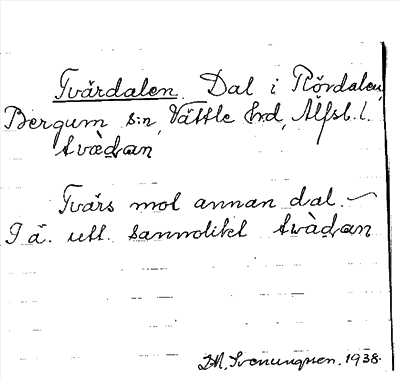 Tvärdalen Dal i Rördalen,
Bergum s:n, Vättle hd, Älfsb. l.
tvædan
Tvärs mot annan dal. —
I ä. utt. sannolikt tvàdan
Svenungsen. 1938.